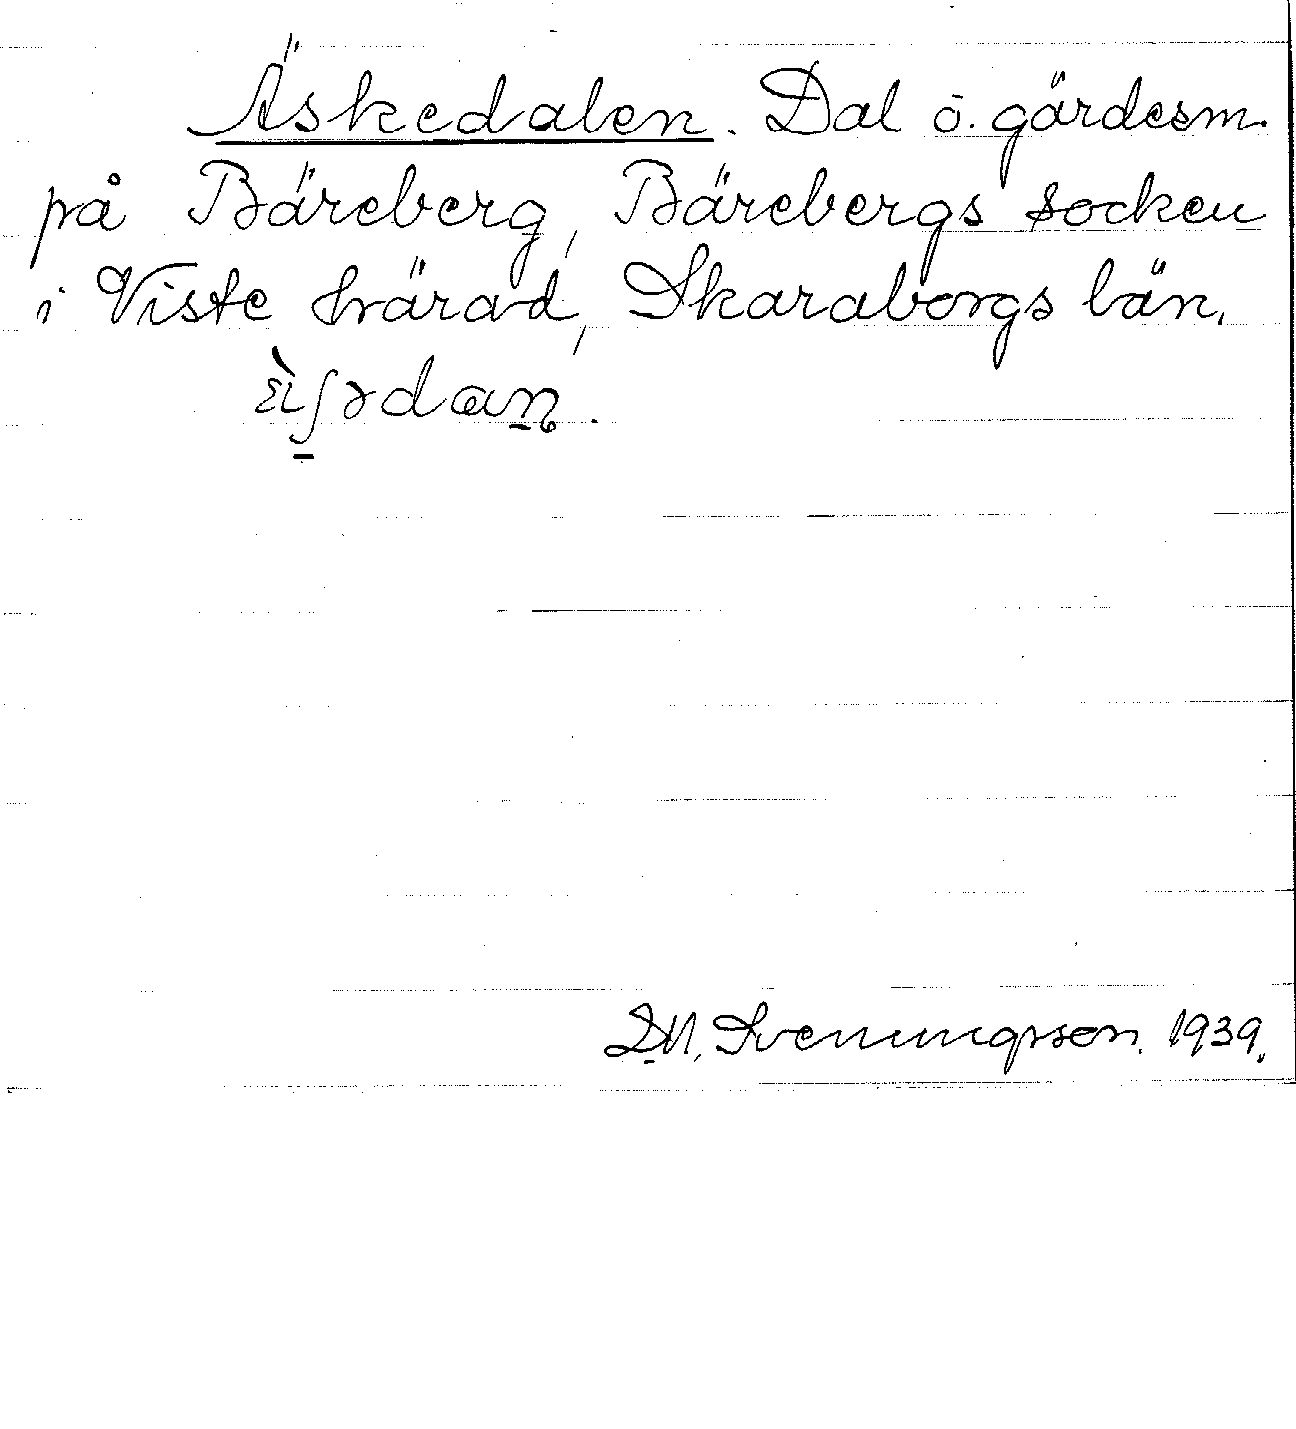 Äskedalen. Dal o. gärdesm.
på Bäreberg, Bärebergs socken
i Viste härad, Skaraborgs län.
D.N. Sveningsson. 1939.